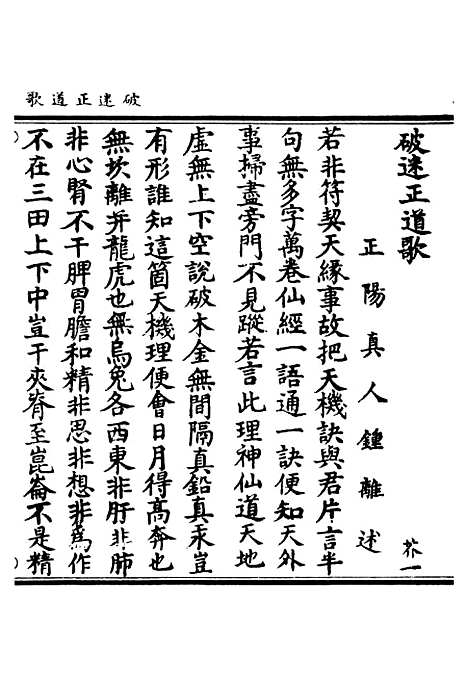 破迷正道歌
破迷正道歌
芥一
正陽真人鍾離述
若非符契天緣事故把天機訣與君片言半
句無多字萬卷仙經一語通一訣便知天外
事掃盡旁門不見蹤若言此理神仙道天地
虛無上下空說破木金無間隔真鉛真汞豈
有形誰知這箇天機理便會日月得高奔也
無坎離并龍虎也無烏兔各西東非肝非肺
非心腎不干脾胃膽和精非思非想非為作
不在三田上下中豈干夾脊至崑崙不是精